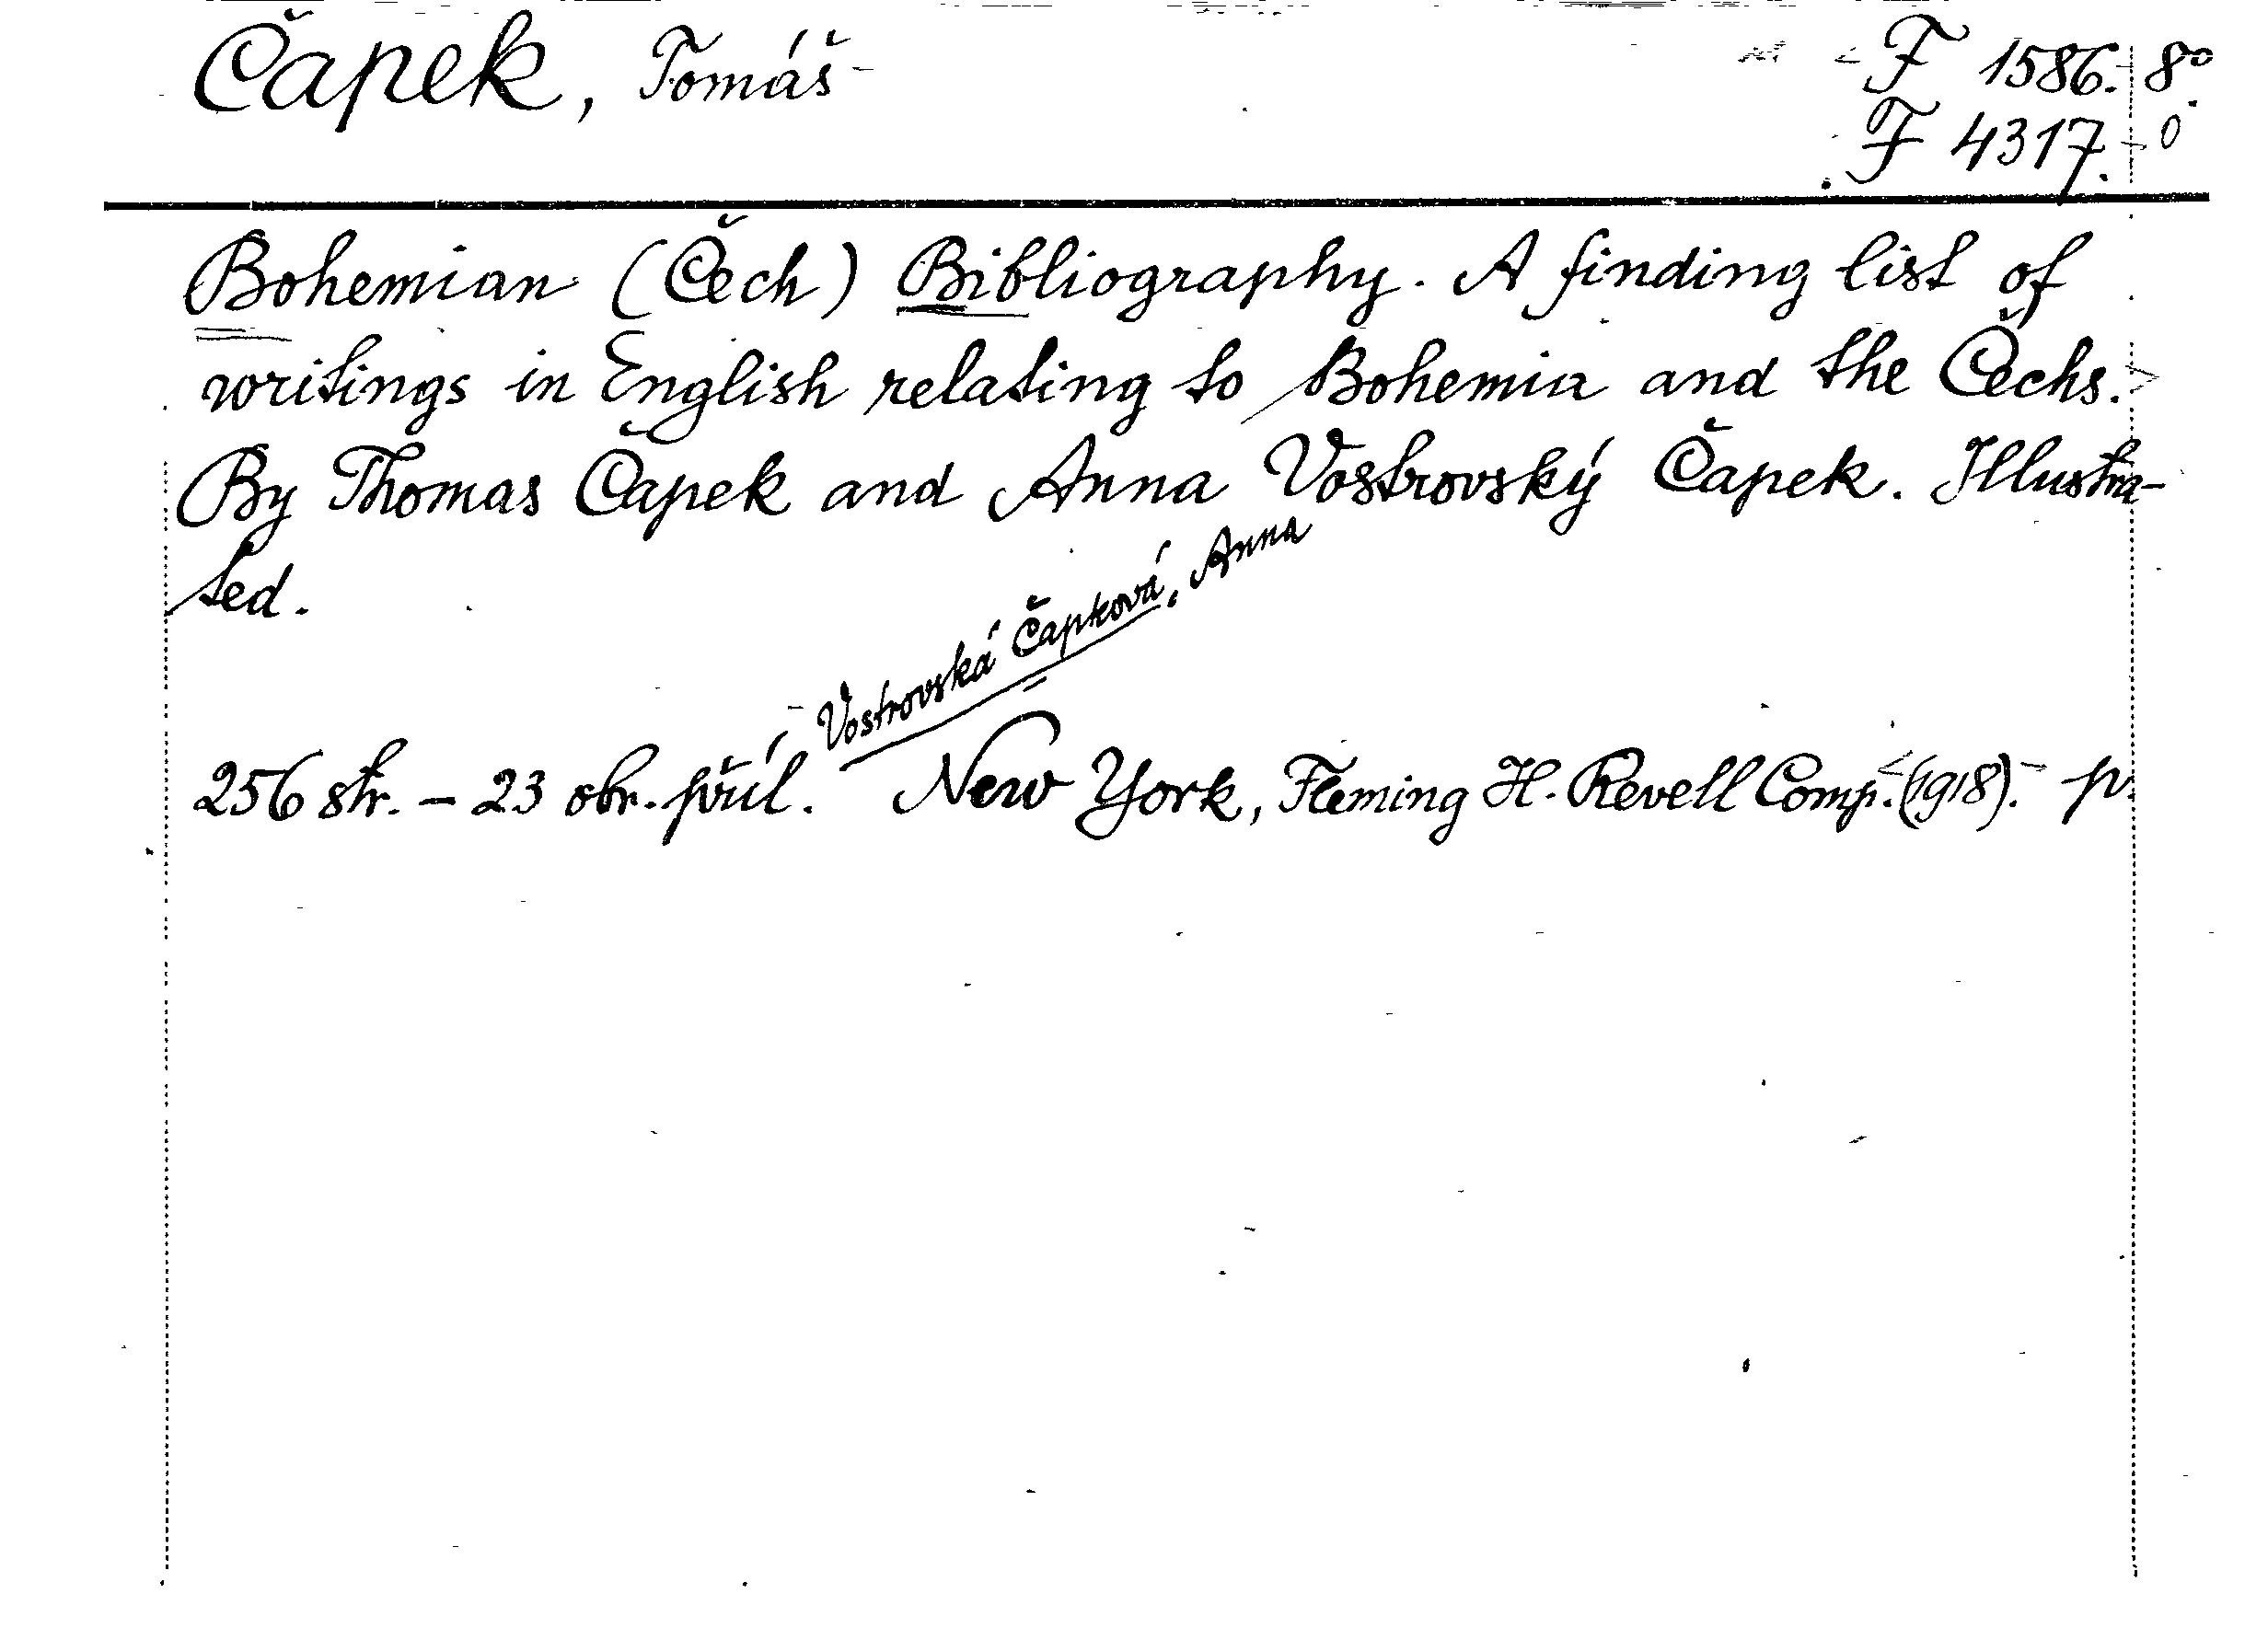 Čapek, Tomáš
F 1586. 8°
F 4317.
Bohemian (Čech) Bibliography. A finding list of
writings in English relating to Bohemia and the Čechs.
By Thomas Čapek and Anna Vostrovský Čapek. Illustra-
ted.
Vostrovská Čapková, Anna
256 str. – 23 obr. příl. New York, Fleming H. Revell Comp. (1918). p.